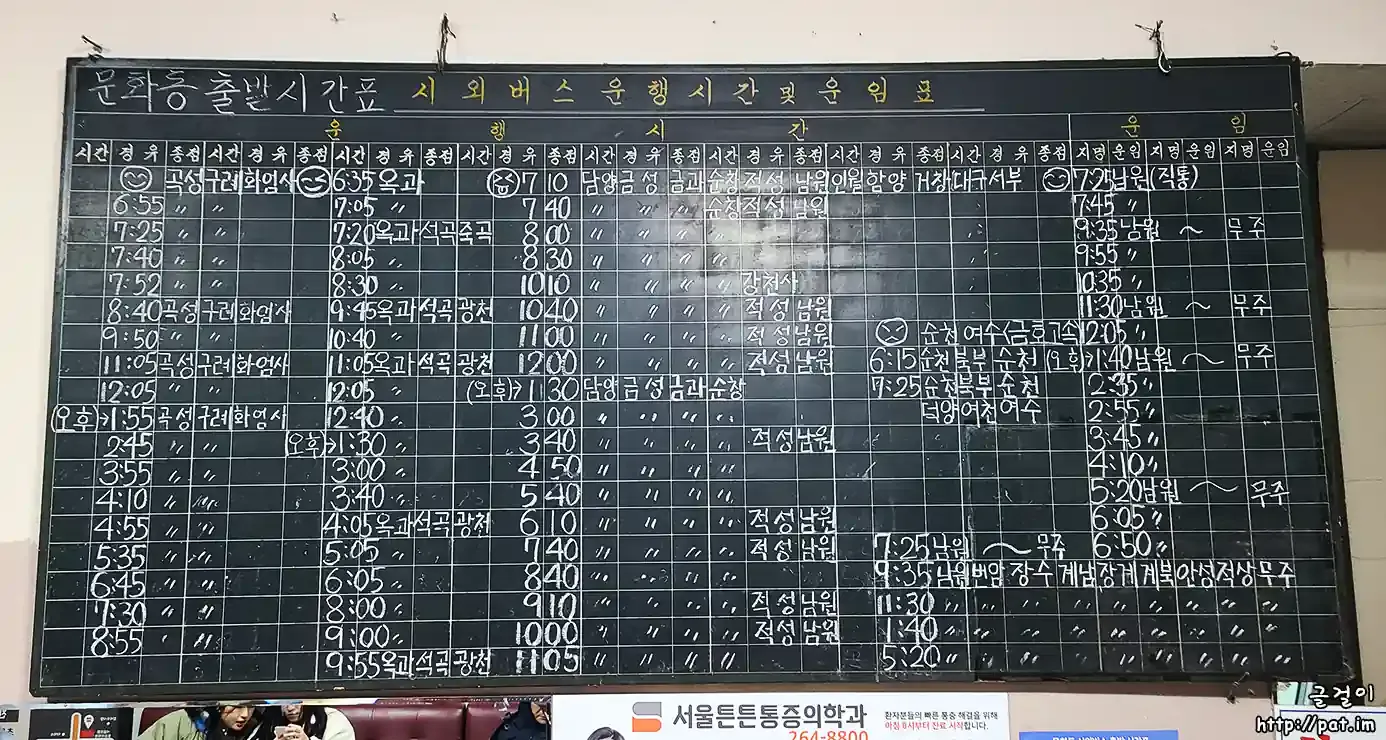 문화동 출발시간표 시외버스운행시간및운임표
운 행 시 간 운 임
시간 경유 종점 시간 경유 종점 시간 경유 종점 시간 경유 종점 시간 경유 종점 시간 경유 종점 시간 경유 종점 시간 경유 종점 지명 운임 지명 운임 지명 운임
곡성 구례 화엄사 6:35 옥과 7 10 담양 금성 금과 순창 적성 남원 인월 함양 거창 대구서부 7:25 남원(직통)
6:55 〃 〃 7:05 〃 7 40 〃 〃 〃 순창 적성 남원 7:45 〃
7:25 〃 〃 7:20 옥과 석곡 죽곡 8 00 〃 〃 〃 〃 9:35 남원 ~ 무주
7:40 〃 〃 8:05 〃 8 30 〃 〃 〃 〃 9:55 〃
7:52 〃 〃 8:30 〃 10 10 〃 〃 〃 〃 강천사 10:35 〃
8:40 곡성 구례 화엄사 9:45 옥과 석곡 광천 10 40 〃 〃 〃 〃 적성 남원 11:30 남원 ~ 무주
9:50 〃 〃 10:40 〃 11 00 〃 〃 〃 〃 적성 남원 순천 여수(금호고속) 12:05 〃
11:05 곡성 구례 화엄사 11:05 옥과 석곡 광천 12 00 〃 〃 〃 〃 적성 남원 6:15 순천북부 순천 (오후)→1:40 남원 ~ 무주
12:05 〃 〃 12:05 〃 (오후)→1 30 담양 금성 금과 순창 7:25 순천북부 순천 2:35 〃
(오후)→1:55 곡성 구례 화엄사 12:40 〃 3 00 〃 〃 〃 〃 덕양 여천 여수 2:55 〃
2:45 〃 〃 (오후)→1:30 〃 3 40 〃 〃 〃 〃 적성 남원 3:45 〃
3:55 〃 〃 3:00 〃 4 50 〃 〃 〃 〃 4:10 〃
4:10 〃 〃 3:40 〃 5 40 〃 〃 〃 〃 5:20 남원 ~ 무주
4:55 〃 〃 4:05 옥과 석곡 광천 6 10 〃 〃 〃 〃 적성 남원 6:05 〃
5:35 〃 〃 5:05 〃 7 40 〃 〃 〃 〃 적성 남원 7:25 남원 ~ 무주 6:50 〃
6:45 〃 〃 6:05 〃 8 40 〃 〃 〃 〃 9:35 남원 번암 장수 계남 장계 계북 안성 적상 무주
7:30 〃 〃 8:00 〃 9 10 〃 〃 〃 〃 적성 남원 11:30 〃 〃 〃 〃 〃 〃 〃 〃 〃
8:55 〃 〃 9:00 〃 10 00 〃 〃 〃 〃 적성 남원 1:40 〃 〃 〃 〃 〃 〃 〃 〃 〃
9:55 옥과 석곡 광천 11 05 〃 〃 〃 〃 5:20 〃 〃 〃 〃 〃 〃 〃 〃 〃
서울튼튼통증의학과
264-8800
환자분들의 빠른 통증 해결을 위해
아침 8시부터 진료 시작합니다.
글걸이
http://pat.im